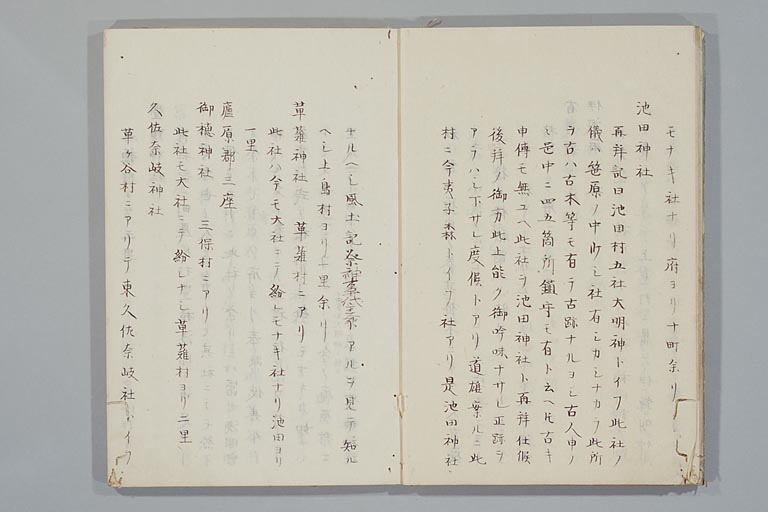 モナキ社ナリ府ヨリ十町余リ
池田神社
再拜記曰池田村五社大明神トイフ此社ノ
儀ハ笹原ノ中ニ少シ社有シカシナカラ此所
ヲ古ハ古木等モ有テ古跡ナルヨシ古人申ノ
邑中ニ四五箇所鎮守モ有ト云ヘ𪜈古キ
申傳モ無ユヘ此社ヲ池田神社ト再拜仕候
後拜ノ御方此上能ク御吟味ナサレ正跡ヲ
アラハシ下サレ度候トアリ道雄案ルニ此
村ニ今夷子森トイフ社アリ是池田神社
ナルヘシ風土記祭神事代主命トアルヲ見テ知ル
ヘシ上島村ヨリ一里余リ
草薙神社 草薙村ニアリ
此社ハ今モ大社ニテ紛レモナキ社ナリ池田ヨリ
一里
廬原郡三座
御穂神社 三保村ニアリ
此社モ大社ニテ紛レナシ草薙村ヨリ二里
久佐奈岐神社
草ヶ谷村ニアリテ東久佐奈岐社トイフ